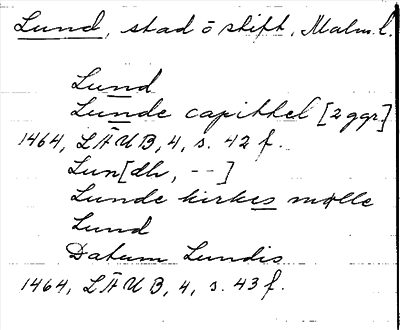 Lund, stad o stift, Malm. l.
Lund
Lunde capittel [2 ggr]
1464, LÄUB, 4, s. 42 f.
Lun[dh, --]
Lunde kirkes mølle
Lund
Datum Lundis
1464, LÄUB, 4, s. 43 f.